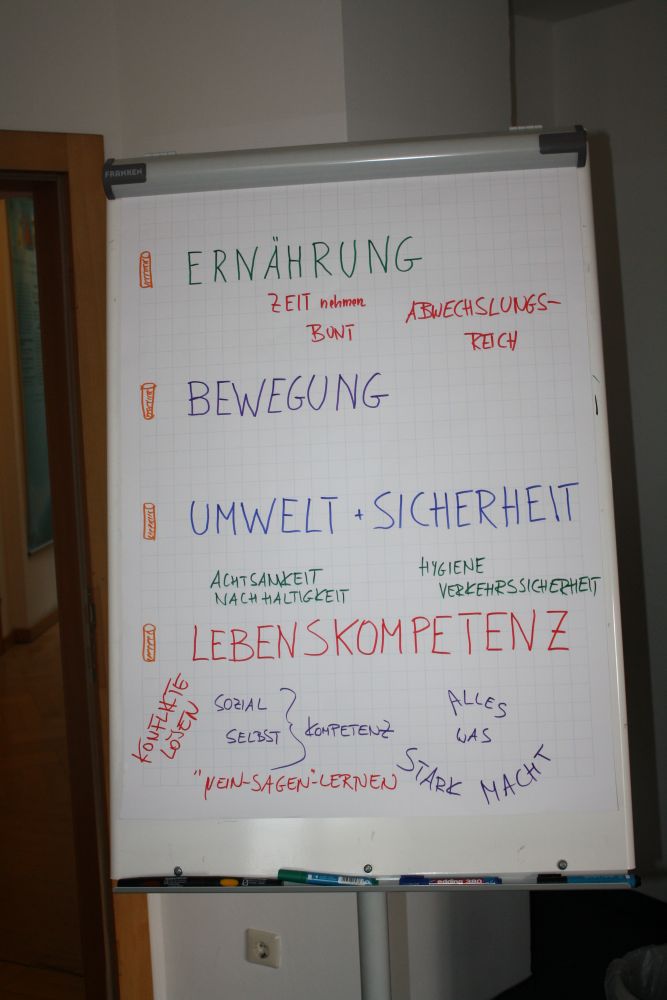 FRANKEN
ERNÄHRUNG
ZEIT nehmen
BUNT
ABWECHSLUNGS-
REICH
BEWEGUNG
UMWELT + SICHERHEIT
ACHTSAMKEIT
NACHHALTIGKEIT
HYGIENE
VERKEHRSSICHERHEIT
LEBENSKOMPETENZ
KONFLIKTE
LÖSEN
SOZIAL
SELBST
KOMPETENZ
"NEIN-SAGEN"-LERNEN
ALLES
WAS
STARK MACHT
edding 380